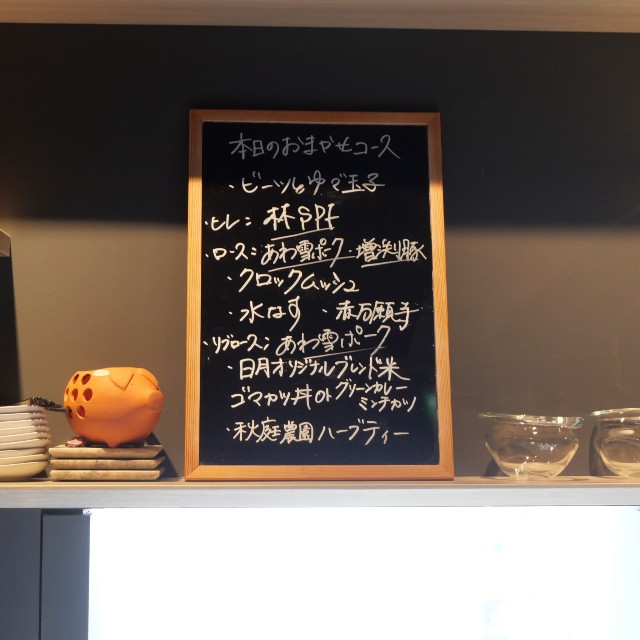 本日のおまかせコース
・ビーツとゆで玉子
・ヒレ：林SPF
・ロース：あわ雪ポーク・増渕豚
・クロックムッシュ
・水なす ・赤万願寺
・リブロース：あわ雪ポーク
・日月オリジナルブレンド米
ゴマカツ丼 or グリーンカレー
ミンチカツ
・秋庭農園ハーブティー